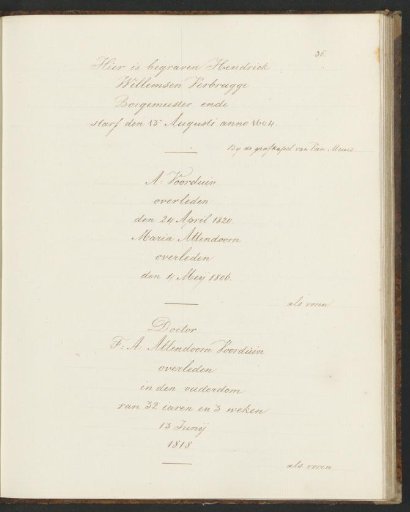 36
Hier is begraven Hendrick
Willemsen Verbrugge
Borgemeester ende
starf den 15 Augusti anno 1604.
By de grafkapel van Van Meurs
A. Voorduin
overleden
den 24 April 1820.
Maria Attendoorn
overleden
den 4 Mey 1806.
als voren
Doctor
F. A. Attendoorn Voorduin
overleden
in den ouderdom
van 32 iaren en 3 weken
13 Junij
1818
als voren